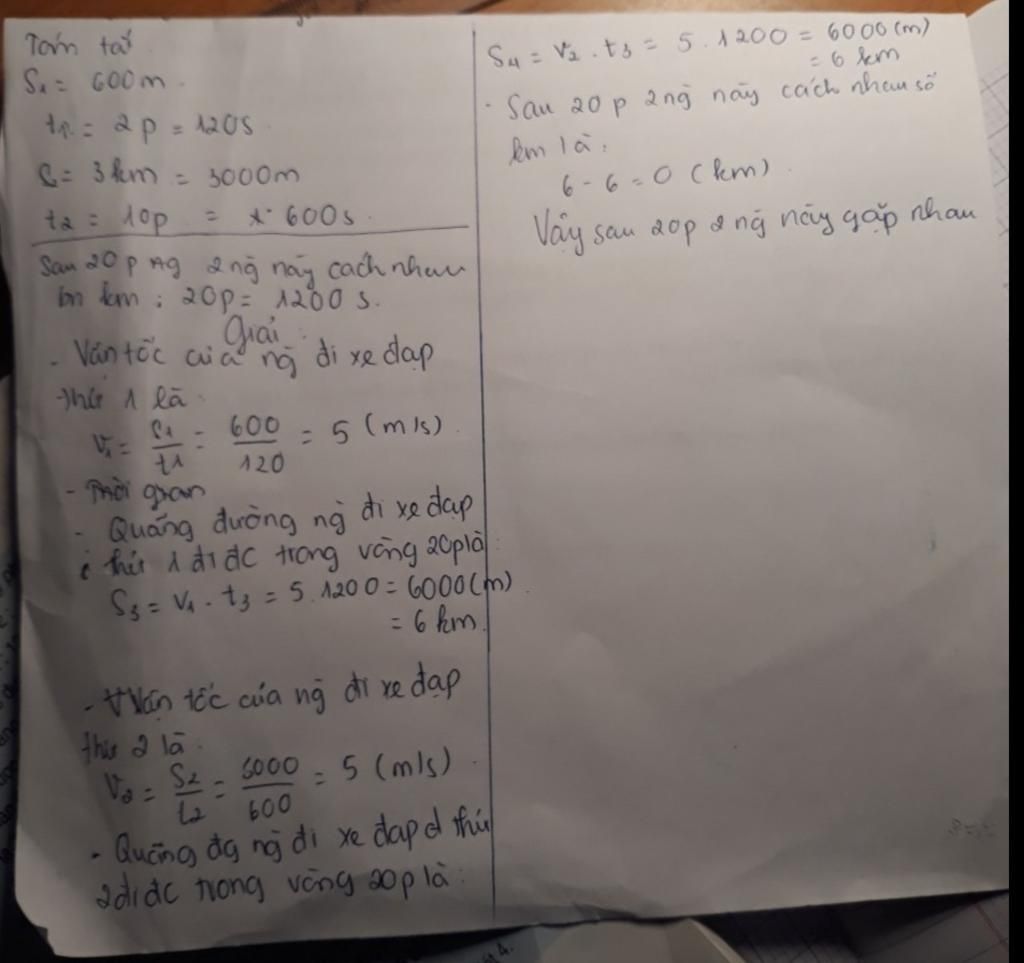 Tóm tắt
S₁ = 600m.
t₁ = 2p = 120s.
S = 3km = 3000m
t₂ = 10p = 600s.
Sau 20p 2ng này cách nhau
bn km : 20p = 1200s.
Giải :
- Vận tốc của ng đi xe đạp
thứ 1 là :
V₁ = S₁/t₁ = 600/120 = 5 (m/s).
- Thời gian
- Quãng đường ng đi xe đạp
thứ 1 đi đc trong vòng 20p là :
S₃ = V₁ . t₃ = 5.1200 = 6000(m).
= 6 km.
- Vận tốc của ng đi xe đạp
thứ 2 là :
V₂ = S₂/t₂ = 3000/600 = 5 (m/s).
- Quãng đg ng đi xe đạp thứ
2 đi đc trong vòng 20p là :
S₄ = V₂ . t₃ = 5.1200 = 6000(m)
= 6 km
- Sau 20p 2ng này cách nhau số
km là :
6 - 6 = 0 (km).
Vậy sau 20p 2ng này gặp nhau